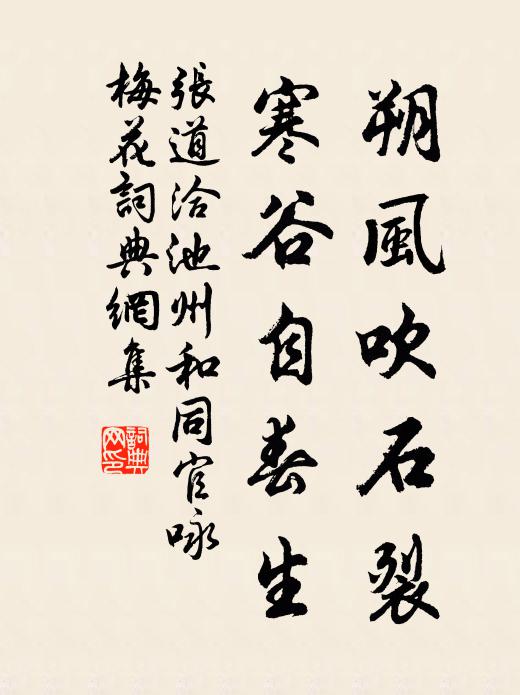 朔風吹石裂
寒谷自春生
張道洽池州和同官咏
梅花詞典網集
詞典
网印